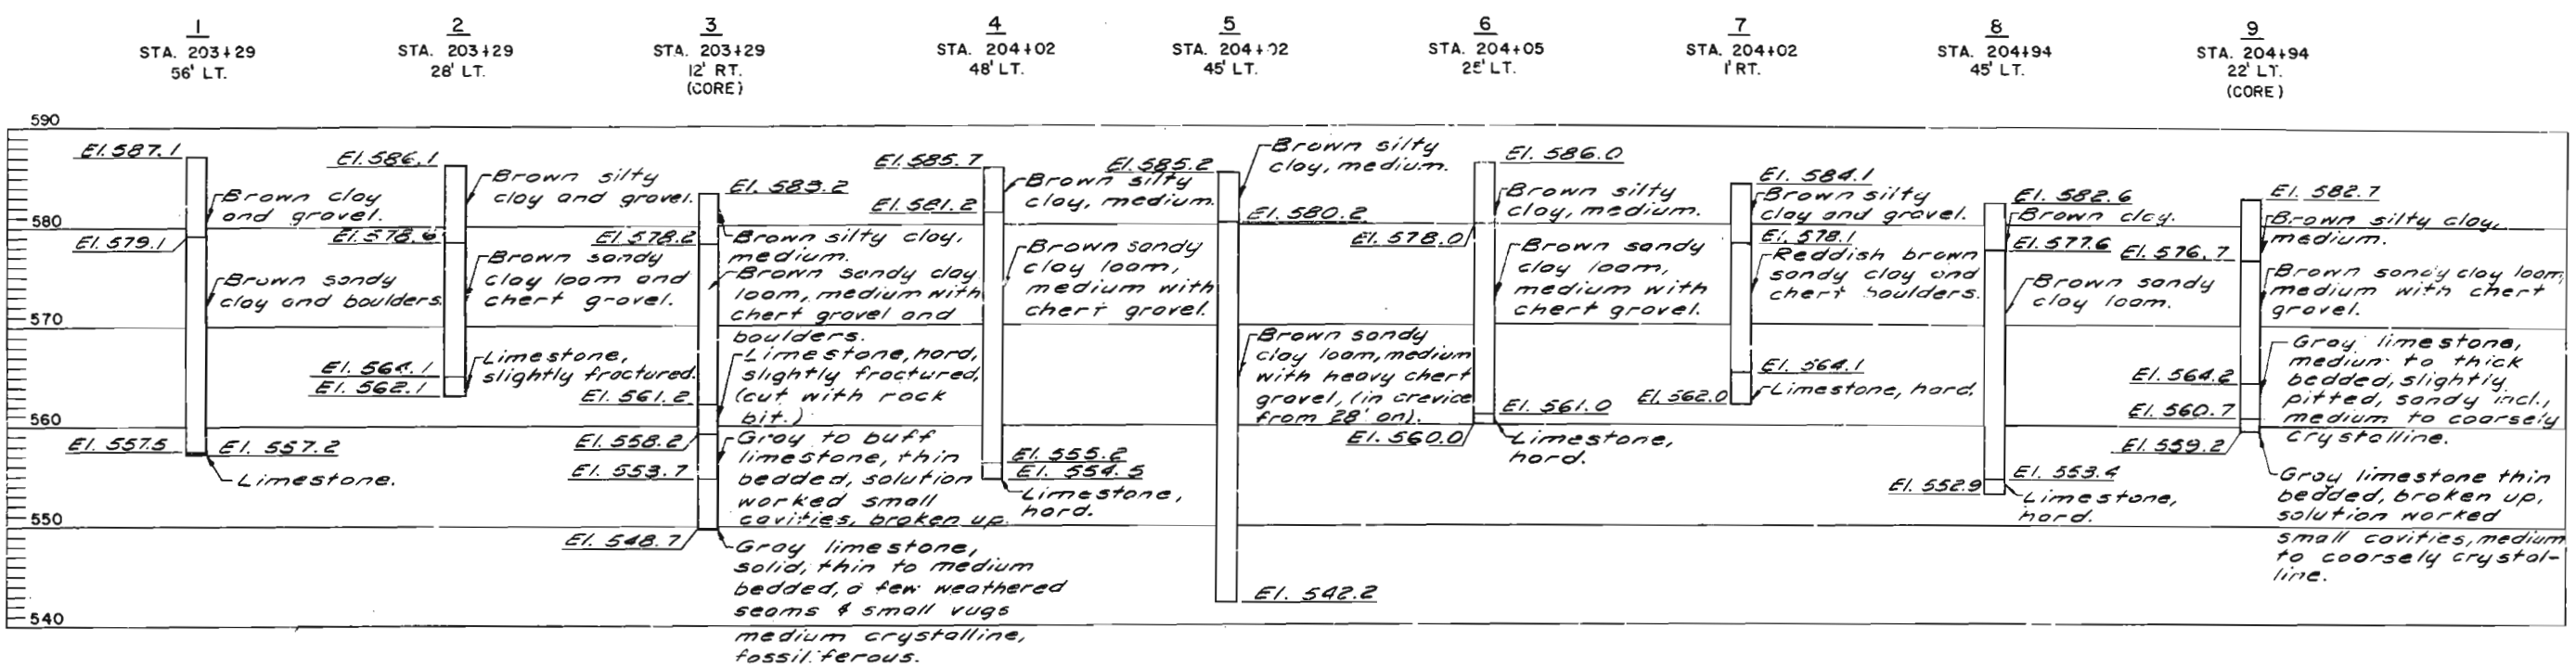 1
STA. 203+29
56' LT.
2
STA. 203+29
28' LT.
3
STA. 203+29
12' RT.
(CORE)
4
STA. 204+02
48' LT.
5
STA. 204+02
45' LT.
6
STA. 204+05
25' LT.
7
STA. 204+02
1' RT.
8
STA. 204+94
45' LT.
9
STA. 204+94
22' LT.
(CORE)
590
580
570
560
550
540
El. 587.1
Brown clay
and gravel.
El. 579.1
Brown sandy
clay and boulders.
El. 557.5
El. 557.2
Limestone.
El. 586.1
Brown silty
clay and gravel.
El. 578.6
Brown sandy
clay loam and
chert gravel.
El. 564.1
El. 562.1
Limestone,
slightly fractured.
El. 583.2
El. 578.2
Brown silty clay,
medium.
Brown sandy clay
loam, medium with
chert gravel and
boulders.
El. 561.2
Limestone, hard,
slightly fractured,
(cut with rock
bit.)
El. 558.2
El. 553.7
Gray to buff
limestone, thin
bedded, solution
worked small
cavities, broken up.
El. 548.7
Gray limestone,
solid, thin to medium
bedded, a few weathered
seams & small vugs
medium crystalline,
fossiliferous.
El. 585.7
Brown silty
clay, medium.
El. 581.2
Brown sandy
clay loam,
medium with
chert gravel.
El. 555.2
El. 554.5
Limestone,
hard.
El. 585.2
Brown silty
clay, medium.
El. 580.2
Brown sandy
clay loam, medium
with heavy chert
gravel, (in crevice
from 28' on).
El. 542.2
El. 586.0
Brown silty
clay, medium.
El. 578.0
Brown sandy
clay loam,
medium with
chert gravel.
El. 561.0
El. 560.0
Limestone,
hard.
El. 584.1
Brown silty
clay and gravel.
El. 578.1
Reddish brown
sandy clay and
chert boulders.
El. 564.1
El. 562.0
Limestone, hard.
El. 582.6
Brown clay.
El. 577.6
Brown sandy
clay loam.
El. 553.4
El. 552.9
Limestone,
hard.
El. 582.7
Brown silty clay,
medium.
El. 576.7
Brown sandy clay loam,
medium with chert
gravel.
El. 564.2
Gray limestone,
medium to thick
bedded, slightly
pitted, sandy incl.,
medium to coarsely
crystalline.
El. 560.7
El. 559.2
Gray limestone thin
bedded, broken up,
solution worked
small cavities, medium
to coarsely crystal-
line.